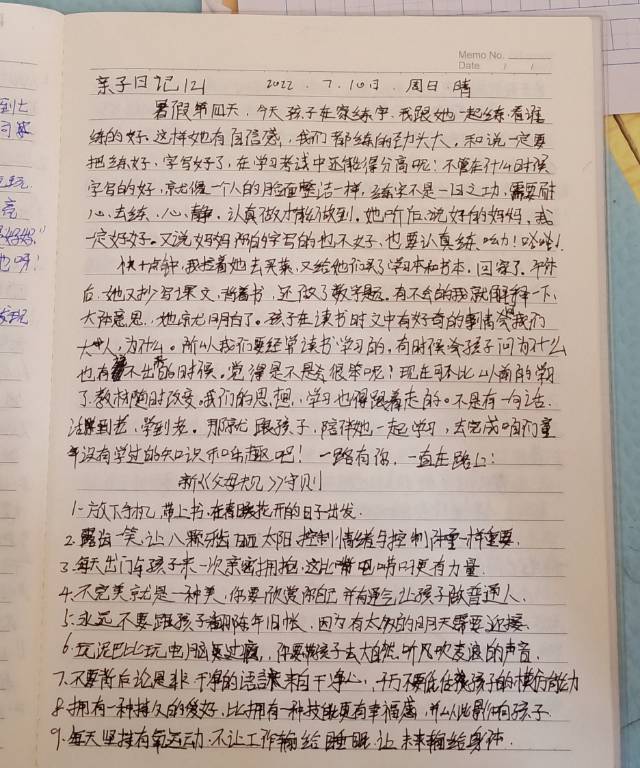 Memo No.
Date / /
亲子日记121 2022.7.10日 周日 晴
暑假第四天,今天孩子在家练字,我跟她一起练,看谁
练的好.这样她有自信感,我们都练的劲头大,和说一定要
把练好,字写好了,在学习考试中还能得分高呢!不管在什么时候
字写的好,就像一个人的脸面整洁一样,练字不是一日之功,需要耐
心,去练,心静,认真做才能做到.她听后说好的妈妈,我
一定好好.又说妈妈你的字写的也不好,也要认真练呦!哈哈!
快十点钟,我拉着她去买菜,又给她们买了学习本和书本,回家了.午休
后,她又抄写课文,背着书,还做了数学题.有不会的我就解释一下,
大体意思,她就明白了.孩子在读书时文中有好奇的事情会问我们
大人,为什么.所以我们要经常读书学习的,有时候会孩子问为什么
也有答不出的时候.觉得是不是会很笨呢?现在可不比以前的学习
了,教材随时改变.我们的思想,学习也得跟着走的.不是有一句话,
活到老,学到老.那就跟孩子,陪伴她一起学习,去完成咱们童
年没有学过的知识和乐趣吧!一路有你,一直在路上!
新《父母规》守则
1.放下手机,带上书,在春暖花开的日子出发.
2.露齿一笑,让八颗牙齿晒太阳,控制情绪与控制体重一样重要.
3.每天出门与孩子来一次亲密拥抱,这比唠叨唠叨更有力量.
4.不完美就是一种美,你要欣赏自己,并有勇气让孩子做普通人.
5.永远不要跟孩子翻陈年旧帐,因为有太多的明天需要迎接.
6.玩泥巴比玩电脑更过瘾,你要带孩子去大自然,听风吹麦浪的声音.
7.不要背后论是非,干净的语言来自干净心,千万不要低估孩子的模仿能力
8.拥有一种持久的爱好,比拥有一种技能更有幸福感,并以此影响孩子.
9.每天坚持有氧运动,不让工作输给睡眠,让未来输给身体.